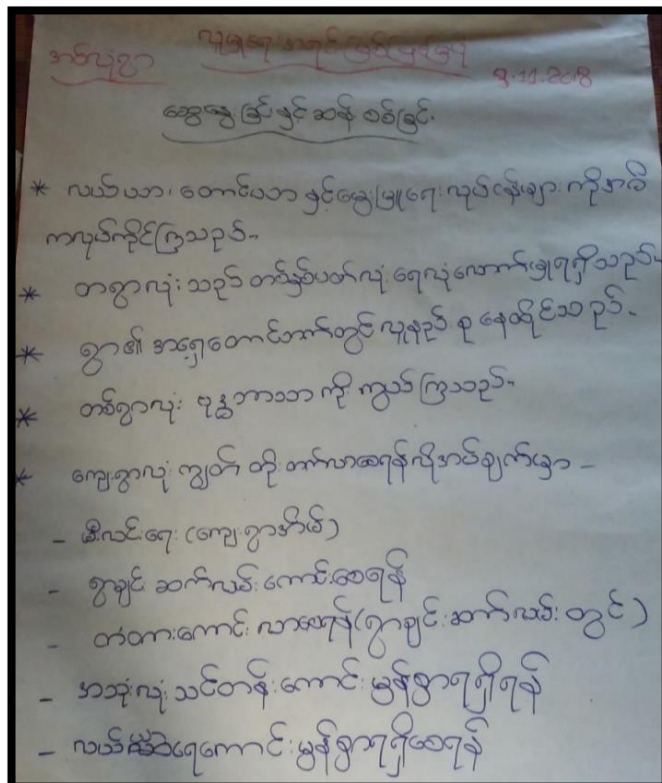 အစ်လုံရွာ
လူမှုရေးအရင်းမြစ်မြေပုံ
9.11.2018
ဆွေးနွေးခြင်းနှင့်ဆန်းစစ်ခြင်း
* လယ်ယာ၊ တောင်ယာ နှင့်မွေးမြူရေးလုပ်ငန်းများကိုအဓိ
ကလုပ်ကိုင်ကြသည်။
* တရွာလုံးသည် တစ်နှစ်ပတ်လုံးရေလုံလောက်မှုရရှိသည်။
* ရွာ၏ အရှေ့တောင်ဘက်တွင် လူနည်းစု နေထိုင်သည်။
* တစ်ရွာလုံး ဗုဒ္ဓဘာသာ ကို ကွယ်ကြသည်။
* ကျေးရွာလုံးကျွတ် တိုးတက်လာစေရန်လိုအပ်ချက်မှာ -
- မီးလင်းရေး (ကျေးရွာအိမ်)
- ရွာချင်းဆက်လမ်းကောင်းစေရန်
- တံတားကောင်းလာစေရန် (ရွာချင်းဆက်လမ်းတွင်)
- အသုံးလုံးသင်တန်းကောင်းမွန်စွာရရှိရန်
- လယ်ရေကောင်းမွန်စွာရရှိစေရန်